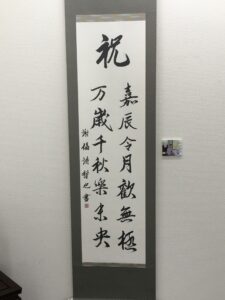 祝
嘉辰令月歡無極
万歳千秋樂未央